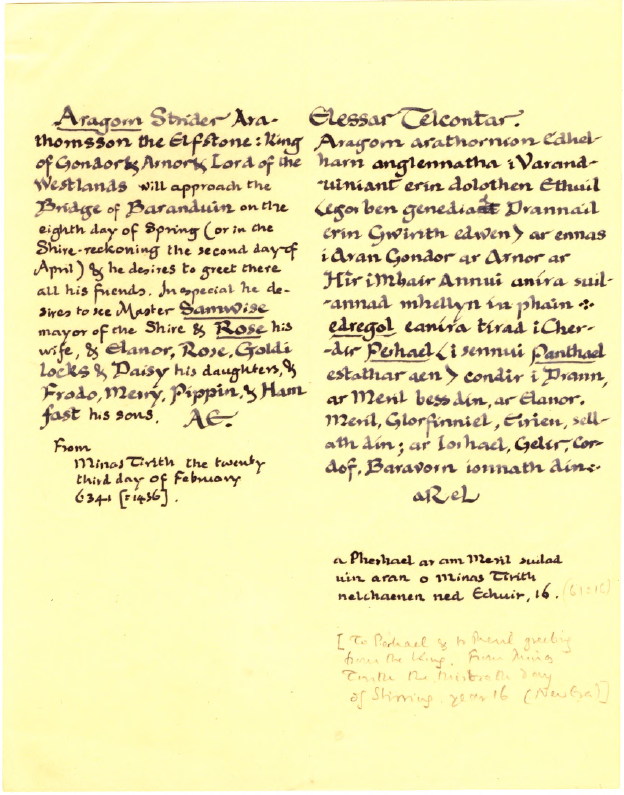 Aragorn Strider Ara-
thornsson the Elfstone: King
of Gondor & Arnor & Lord of the
Westlands will approach the
Bridge of Baranduin on the
eighth day of Spring (or in the
Shire-reckoning the second day of
April) & he desires to greet there
all his friends. In especial he de-
sires to see Master Samwise
mayor of the Shire & Rose his
wife, & Elanor, Rose, Goldi
locks & Daisy his daughters, &
Frodo, Merry, Pippin, & Ham
fast his sons. AE.
From
Minas Tirith the twenty
third day of February
6341 [=1436].
Elessar Telcontar.
Aragorn arathornion Edhel-
harn anglennatha i Varand-
-uiniant erin dolothen Ethuil
(egor ben genediad Drannail
erin Gwirith edwen) ar ennas
i Aran Gondor ar Arnor ar
Hîr iMbair Annui anira suil-
-annad mhellyn in phain :
edregol e anira tirad i Cher-
-dir Perhael (i sennui Panthael
estathar aen) condir i Drann,
ar Meril bess dîn, ar Elanor,
Meril, Glorfinniel, Eirien, sell-
ath dîn; ar Iorhael, Gelir, Cor-
dof, Baravorn ionnath dîn:-
aRel
a Pherhael ar am Meril suilad
uin aran o Minas Tirith
nelchaenen ned Echuir, 16. (61:16)
[To Perhael & to Meril greeting
from the King. From Minas
Tirith the thirtieth day
of Stirring. year 16 (New Era)]